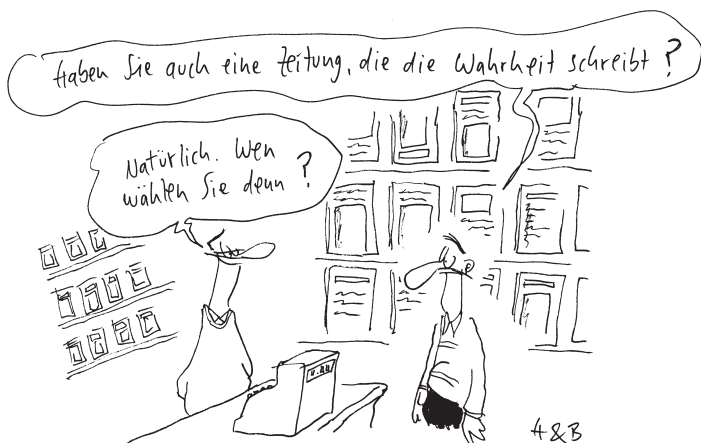 Haben Sie auch eine Zeitung, die die Wahrheit schreibt?
Natürlich. Wen
wählen Sie denn?
A&B